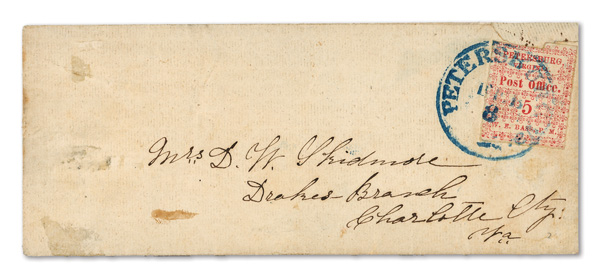 PETERSBURG
PETERSBURG,
Post Office.
5
8
Mrs D. W. Skidmore
Drakes Branch
Charlotte Cty:
Va